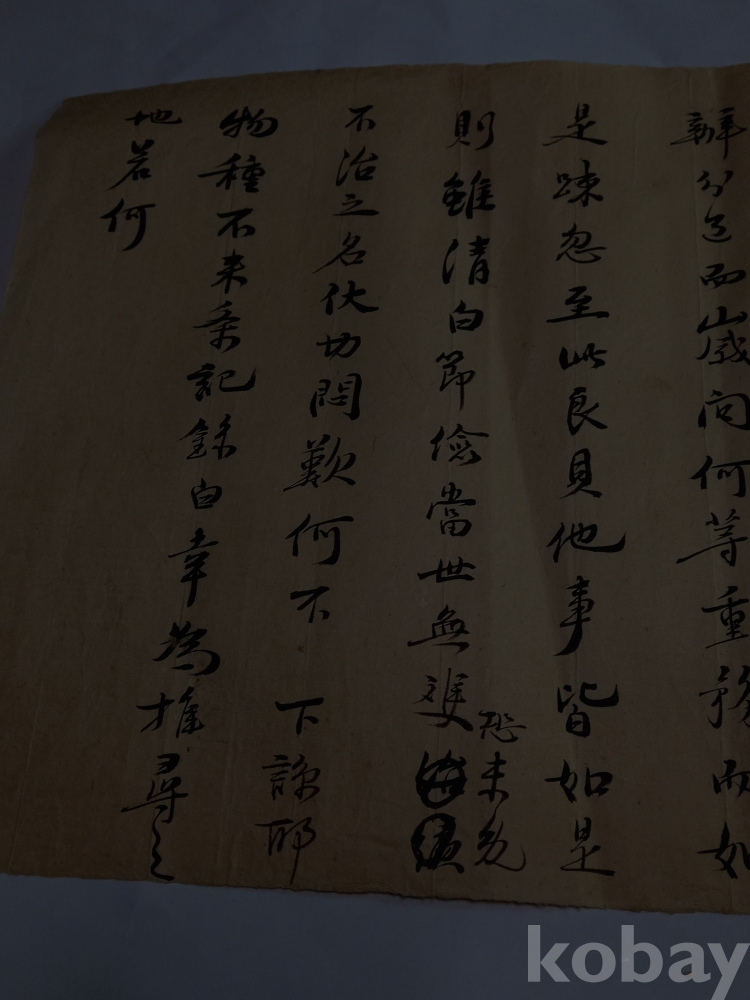 辦分已而山歲向何等重務而如
是踈忽至此良貝他事皆如是
則雖清白節儉當世無雙恐未免
不治之名伏切悶歎何不 下諒耶
物種不來条記錄白幸為推尋之
地若何
kobay